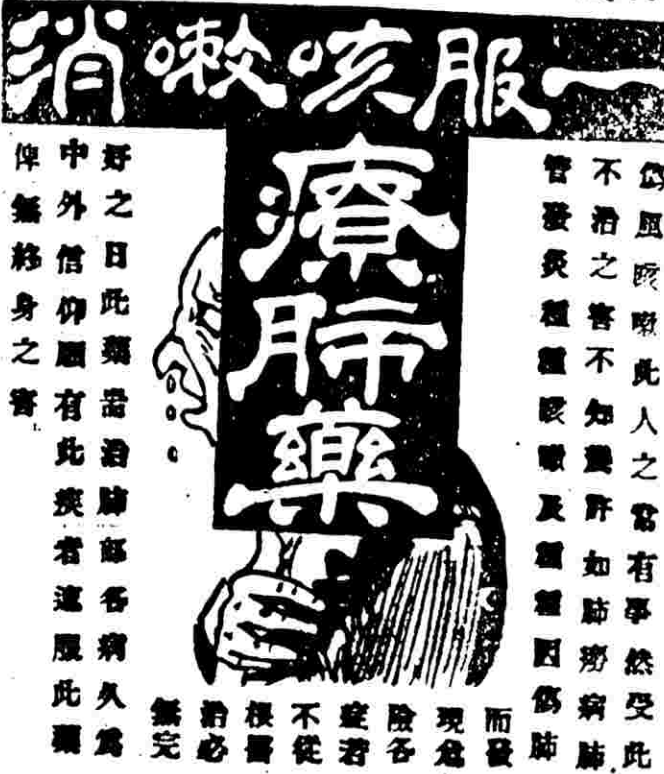 一服咳嗽消
療肺藥
傷風咳嗽此人之常有事然受此
不治之害不知幾許如肺癆病肺
管發炎種種咳嗽及種種因傷肺
而發
現危
險各
症若
不從
根醫
治必
無完
好之日此藥耑治肺部各病久為
中外信仰願有此疾者速服此藥
俾無終身之害